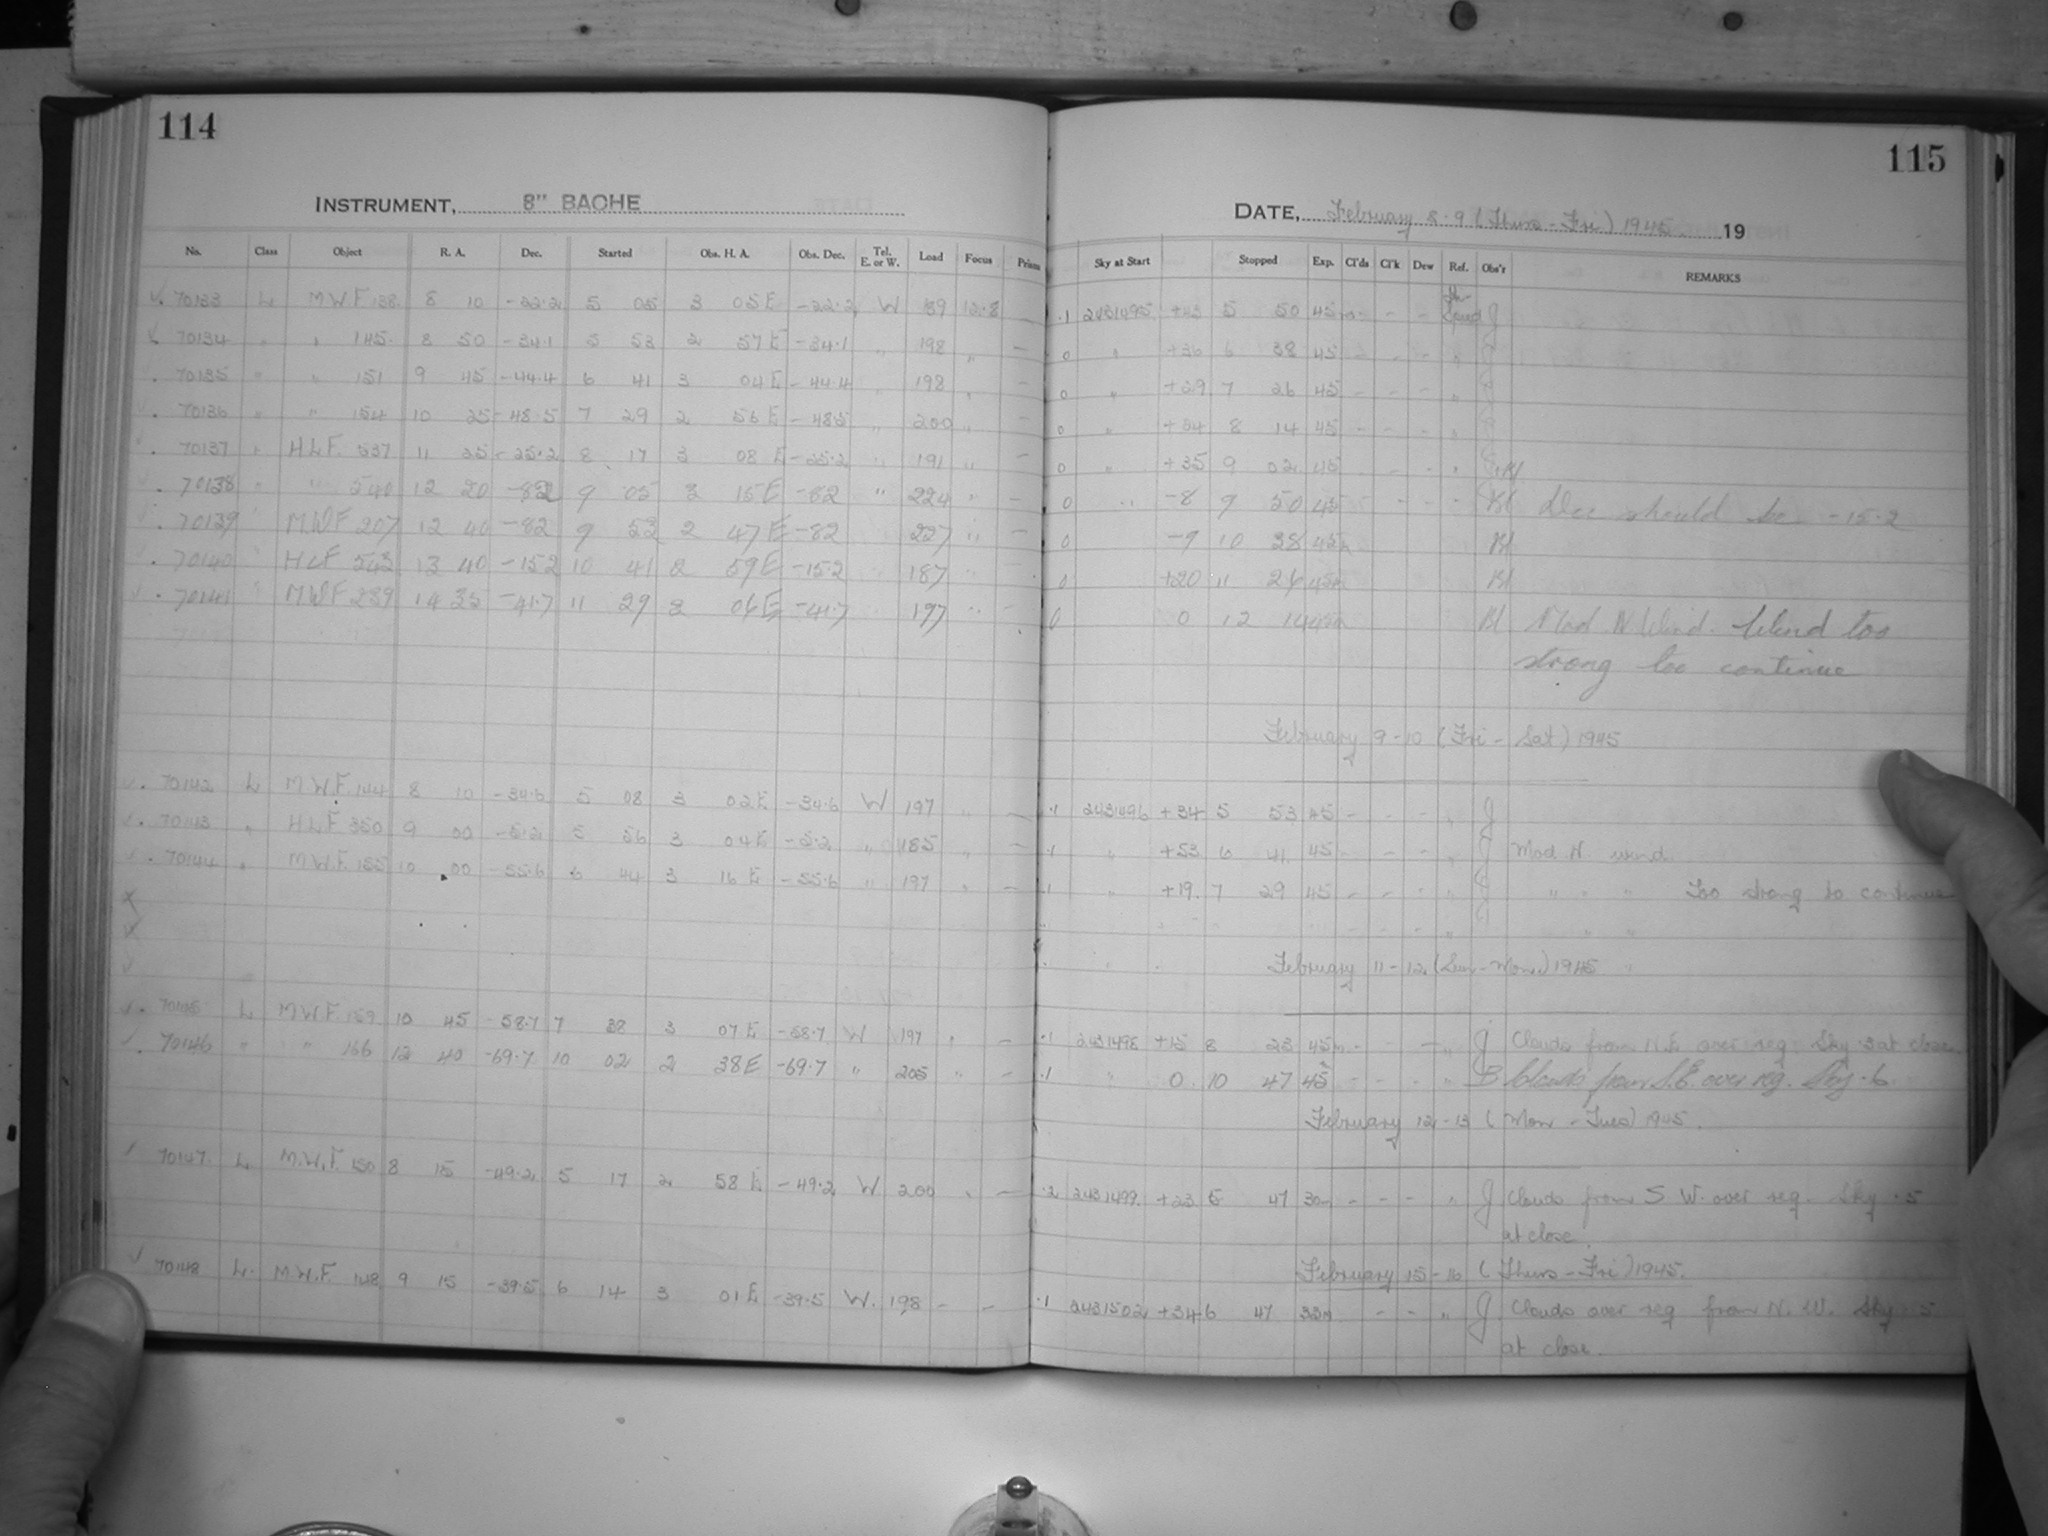 114
INSTRUMENT, 8" BACHE
No. Class Object R. A. Dec. Started Obs. H. A. Obs. Dec. Tel. E. or W. Load Focus Prism
70133 L M.W.F. 138 8 10 -22.2 5 05 3 05 E -22.2 W 189 12.8 —
70134 " " 145 8 50 -34.1 5 53 2 57 E -34.1 " 198 " —
70135 " " 151 9 45 -44.4 6 41 3 04 E -44.4 " 198 " —
70136 " " 154 10 25 -48.5 7 29 2 56 E -48.5 " 200 " —
70137 " H.L.F. 537 11 25 -25.2 8 17 3 08 E -25.2 " 191 " —
70138 " " 540 12 20 -82 9 05 3 15 E -82 " 224 " —
70139 " M.W.F 207 12 40 -82 9 53 2 47 E -82 " 227 "
70140 " HLF 543 13 40 -15.2 10 41 2 59 E -15.2 " 187 "
70141 " MWF 239 14 35 -41.7 11 29 3 06 E -41.7 " 197 " —
70142 L M.W.F. 144 8 10 -34.6 5 08 3 02 E -34.6 W 197 " —
70143 " H.L.F 350 9 00 -5.2 5 56 3 04 E -5.2 " 185 " —
70144 " M.W.F. 155 10 00 -55.6 6 44 3 16 E -55.6 " 197 " —
70145 L M.W.F. 159 10 45 -58.7 7 38 3 07 E -58.7 W 197 " —
70146 " " 166 12 40 -69.7 10 02 2 38 E -69.7 " 205 " —
70147 L M.W.F. 150 8 15 -49.2 5 17 2 58 E -49.2 W 200 " —
70148 L. M.W.F. 148 9 15 -39.5 6 14 3 01 E -39.5 W. 198 - -
115
DATE, February 8-9 (Thurs-Fri) 1945 19
Sky at Start Stopped Exp. Cl'ds Cl'k Dew Ref. Obs'r REMARKS
.1 2431495 +43 5 50 45m - - - J
0 " +36 6 38 45 - - - " J
0 " +29 7 26 45 - - - " J
0 " +24 8 14 45 - - - " J
0 " +35 9 02 45 - - - "
0 " -8 9 50 45 - - - - Bl Dec should be -15.2
0 -9 10 38 45m Bl
0 +20 11 26 45m Bl
0 0 12 14 45m Bl Mod N Wind. Wind too
strong too continue
February 9-10 (Fri - Sat) 1945
.1 2431496 +34 5 53 45 - - - " J
.1 " +53 6 41 45 - - - " J Mod N. wind.
.1 " +19 7 29 45 - - - " J " " " Too strong to continue
February 11-12 (Sun-Mon) 1945
.1 2431498 +15 8 23 45m - - - " J Clouds from N.E over reg. Sky .3 at close
.1 " 0 10 47 45 - - - " B Clouds from S.E. over reg. Sky .6
February 12-13 (Mon - Tues) 1945.
.2 2431499 +23 5 47 30m - - - " J Clouds from S W. over reg. Sky .5
at close.
February 15-16 (Thurs-Fri) 1945.
.1 2431502 +34 6 47 33m - - " J Clouds over reg from N. W. Sky .5
at close.